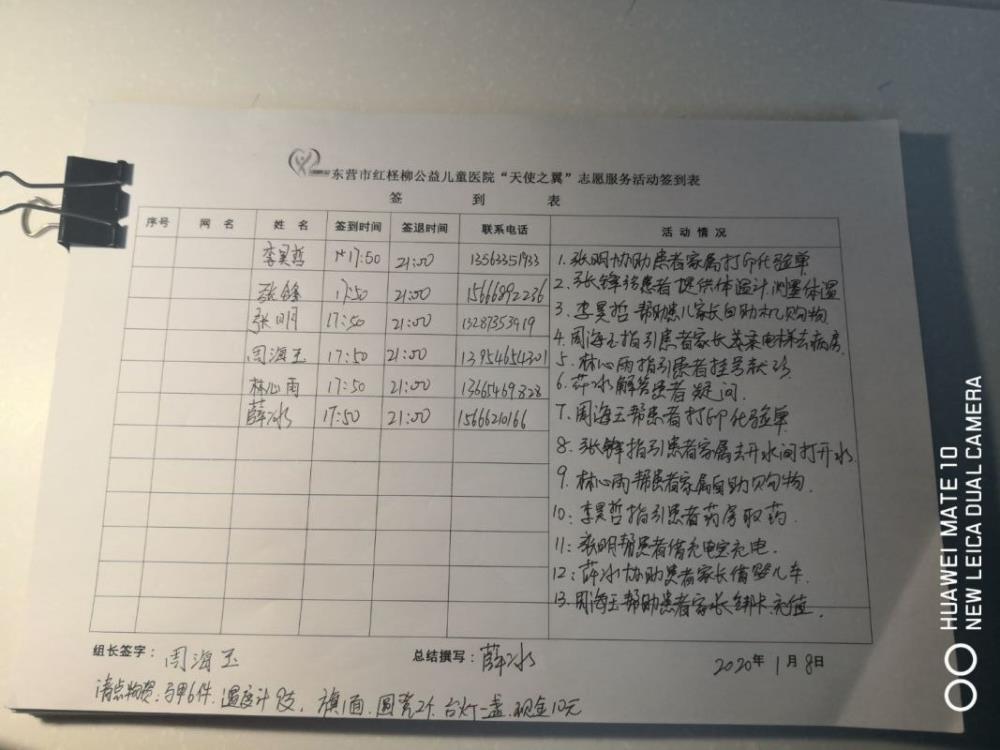 东营市红柽柳公益儿童医院“天使之翼”志愿服务活动签到表
签 到 表
序号 网 名 姓 名 签到时间 签退时间 联系电话 活 动 情 况
李昊哲 17:50 21:00 13563351933
张锋 17:50 21:00 15666892236
张明 17:50 21:00 13287353919
周海玉 17:50 21:00 13954654301
林心雨 17:50 21:00 13665469828
薛冰 17:50 21:00 15666210166
1. 张明协助患者家属打印化验单
2. 张锋给患者提供体温计,测量体温
3. 李昊哲帮助患儿家长自助机购物
4. 周海玉指引患者家长乘电梯去病房.
5. 林心雨指引患者挂号
6. 薛冰解答患者疑问.
7. 周海玉帮患者打印化验单
8. 张锋指引患者家属去开水间打开水.
9. 林心雨帮患者家属自助购物.
10: 李昊哲指引患者药房取药.
11: 张明帮患者借充电宝充电.
12: 薛冰协助患者家长借婴儿车.
13. 周海玉帮助患者家长绑卡充值.
组长签字: 周海玉 总结撰写: 薛冰 2020年 1月 8日
清点物资: 马甲6件. 温度计8支, 旗1面. 台灯一盏. 现金10元
HUAWEI MATE 10
NEW LEICA DUAL CAMERA